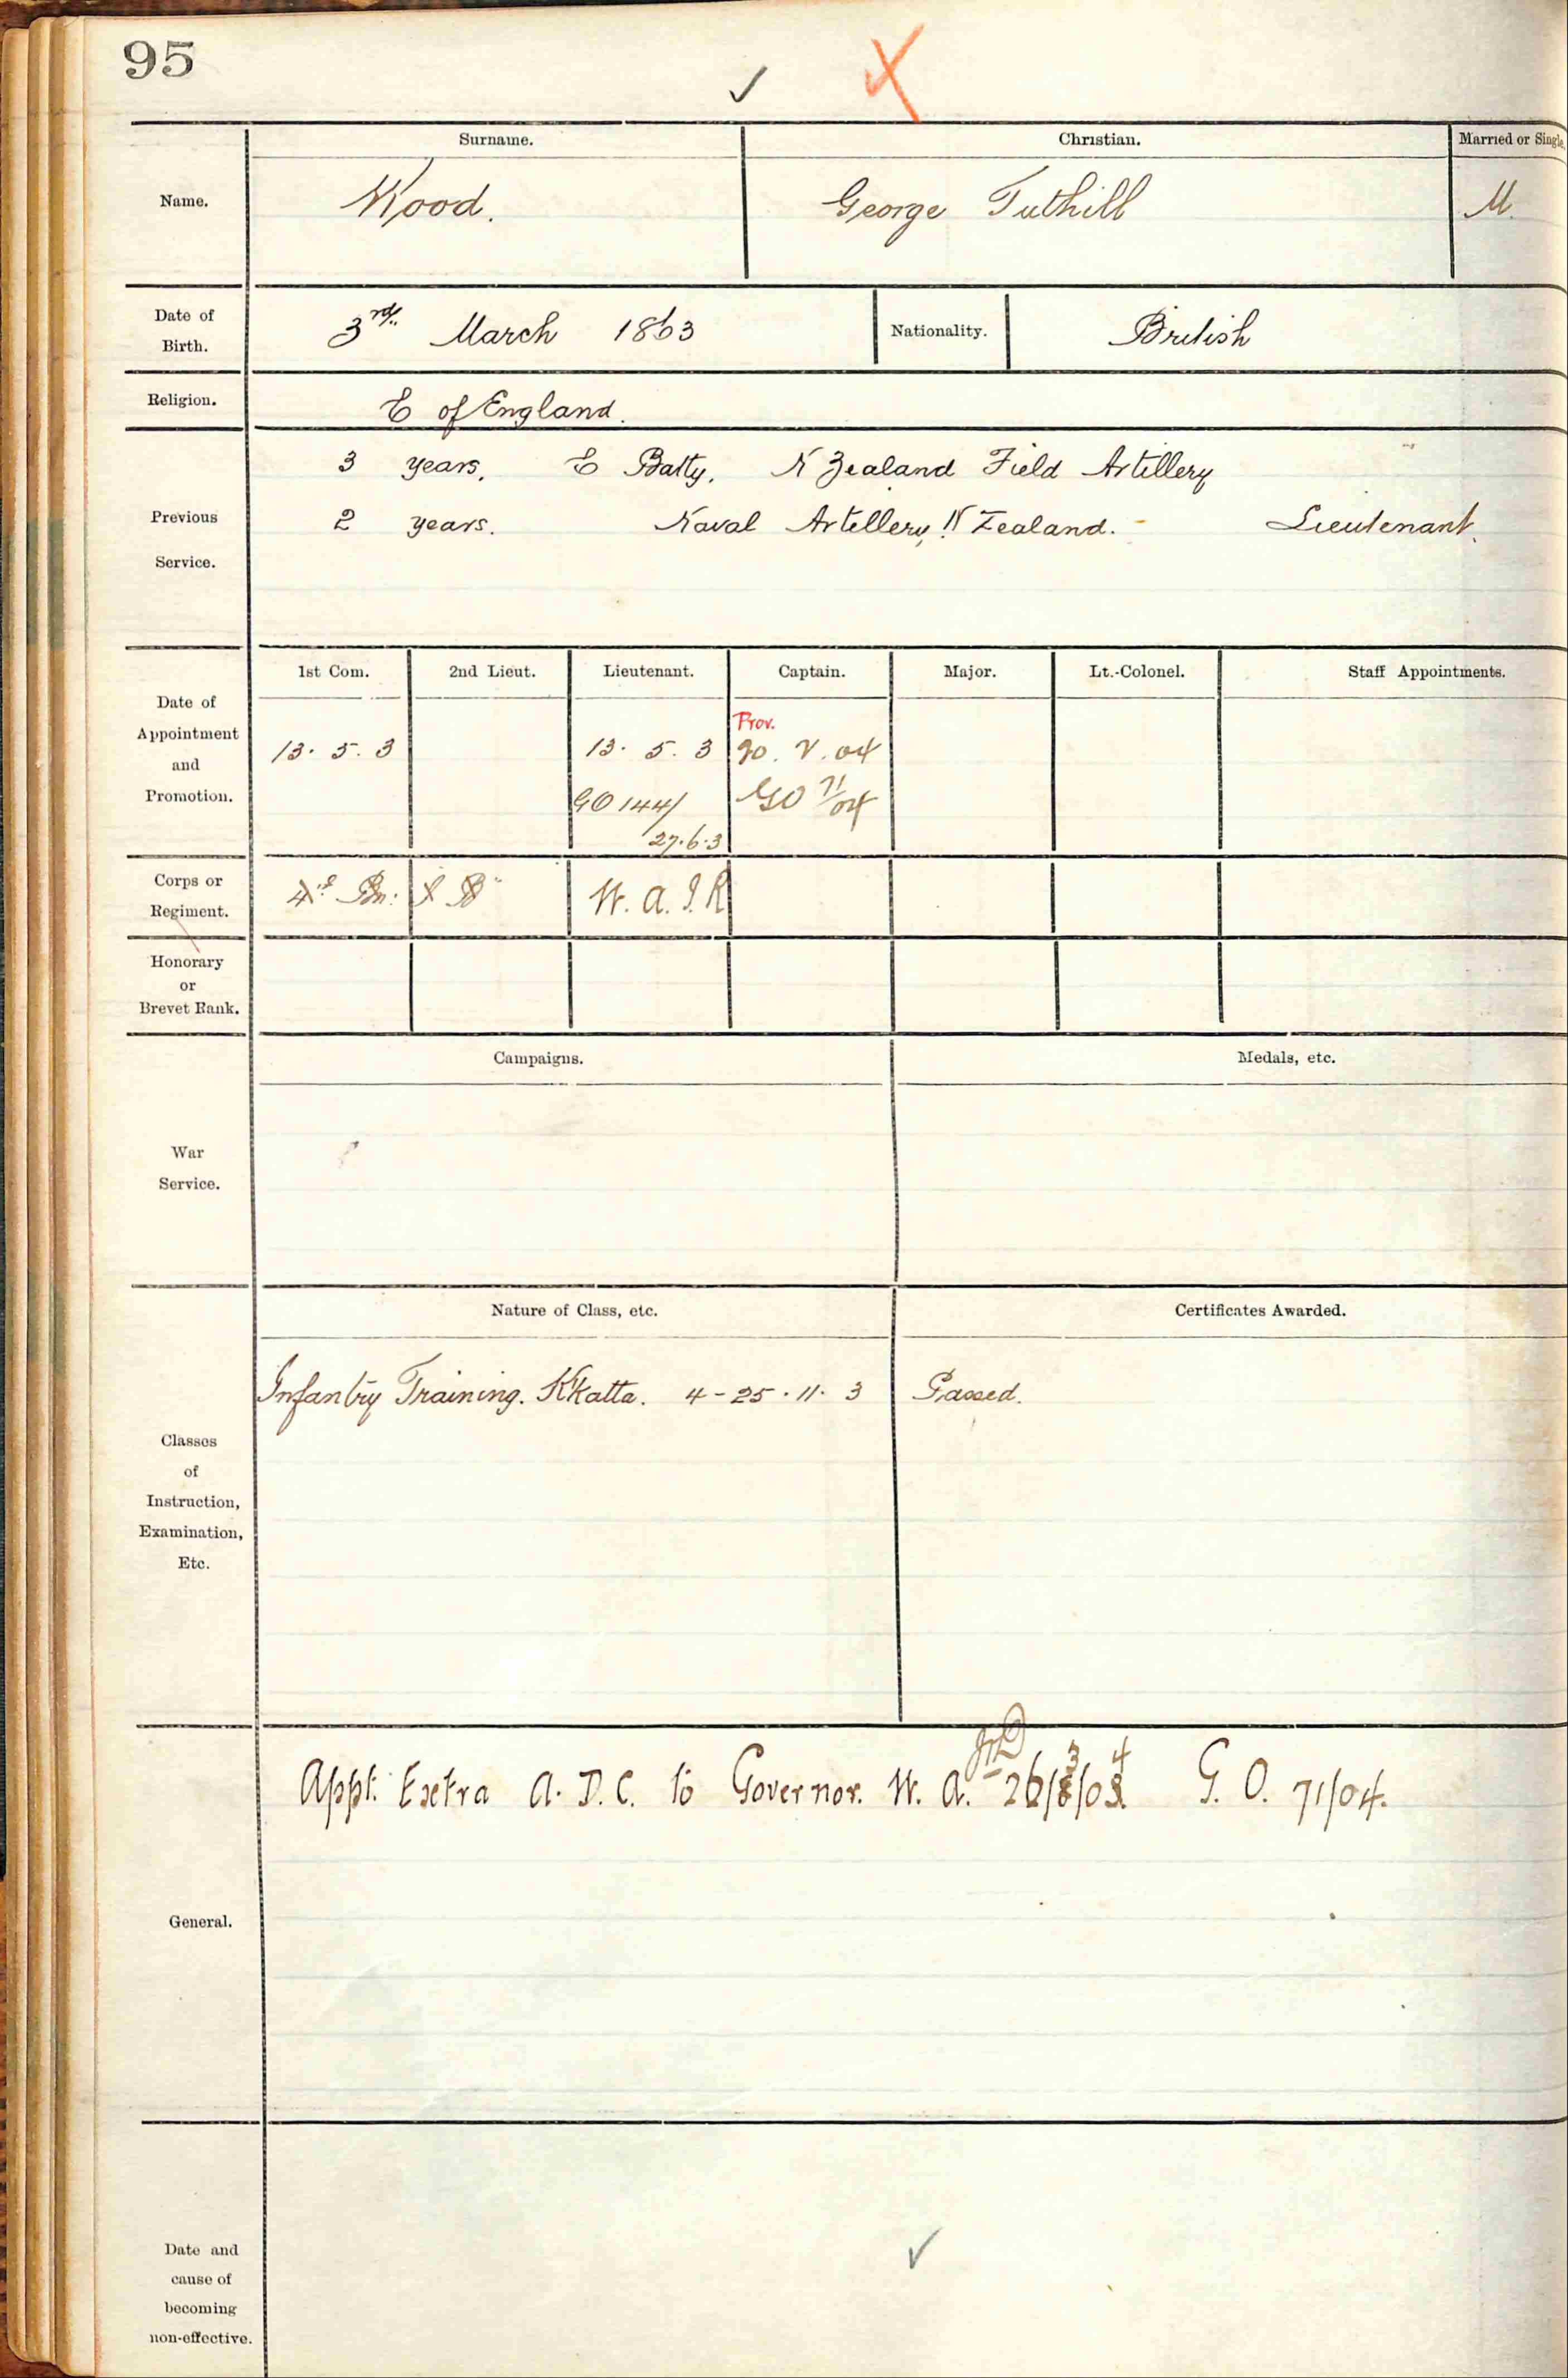 95
Surname. Christian. Married or Single.
Name. Wood. George Tuthill M.
Date of Birth. 3rd. March 1863 Nationality. British
Religion. C of England.
3 years, E Batty. N Zealand Field Artillery
Previous Service. 2 years. Naval Artillery N Zealand. - Lieutenant.
1st Com. 2nd Lieut. Lieutenant. Captain. Major. Lt.-Colonel. Staff Appointments.
Date of Appointment and Promotion.
Prov.
13. 5. 3 13. 5. 3 04
GO 144/ GO 71/04
27.6.3
Corps or Regiment. W. A. I. R
Honorary or Brevet Rank.
Campaigns. Medals, etc.
War Service.
Nature of Class, etc. Certificates Awarded.
Infantry Training. K'Katta. 4-25.11.3 Passed.
Classes of Instruction, Examination, Etc.
Appt. Extra A. D. C. to Governor. W. A. - 26/3/04 G. O. 71/04.
General.
Date and cause of becoming non-effective.